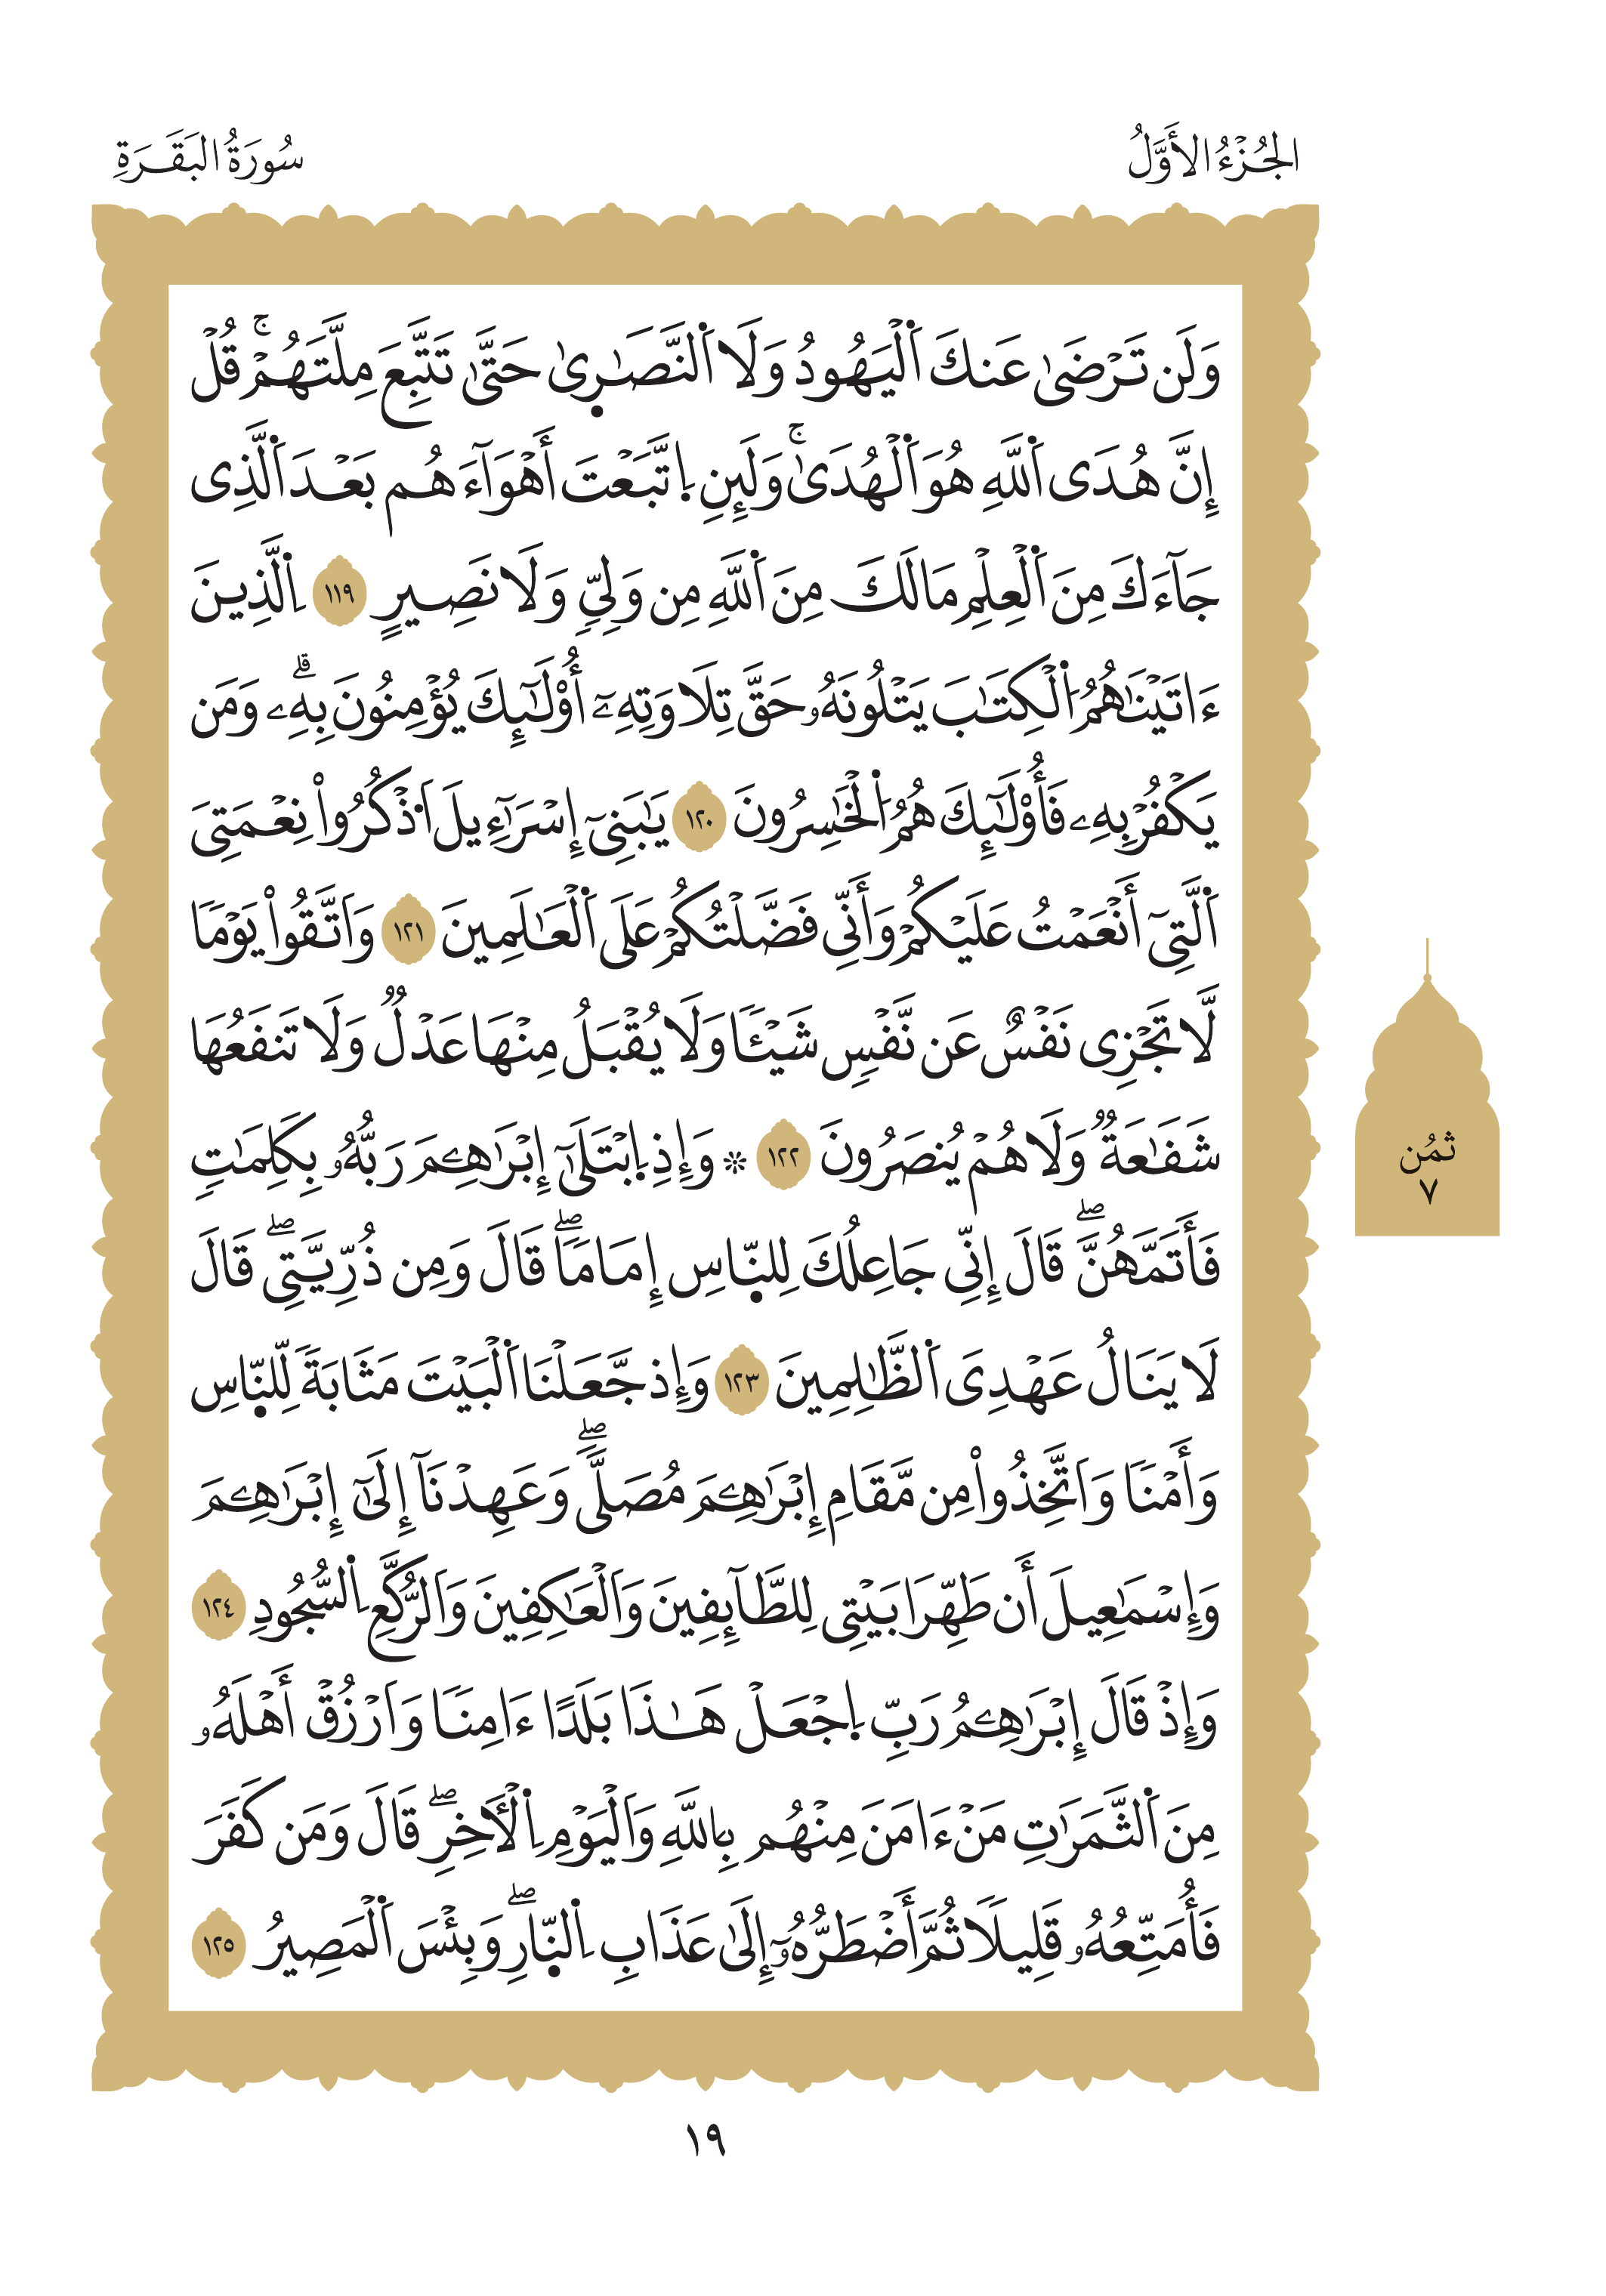 الجُزْءُ الأَوَّلُ
سُورَةُ البَقَرَةِ
وَلَن تَرْضَىٰ عَنكَ اَ۬لْيَهُودُ وَلَا اَ۬لنَّصَٰر۪ىٰ حَتَّىٰ تَتَّبِعَ مِلَّتَهُمْۚ قُلْ
إِنَّ هُدَى اَ۬للَّهِ هُوَ اَ۬لْهُدَىٰۚ وَلَئِنِ اِ۪تَّبَعْتَ أَهْوَآءَهُم بَعْدَ اَ۬لَّذِى
جَآءَكَ مِنَ اَ۬لْعِلْمِ مَا لَكَ مِنَ اَ۬للَّهِ مِن وَلِىّٖ وَلَا نَصِيرٍ ١١٩ اِ۬لَّذِينَ
ءَاتَيْنَٰهُمُ اُ۬لْكِتَٰبَ يَتْلُونَهُۥ حَقَّ تِلَاوَتِهِۦٓ أُوْلَٰٓئِكَ يُؤْمِنُونَ بِهِۦۗ وَمَن
يَكْفُرْ بِهِۦ فَأُوْلَٰٓئِكَ هُمُ اُ۬لْخَٰسِرُونَ ١٢٠ يَٰبَنِىٓ إِسْرَٰٓءِيلَ اَ۟ذْكُرُواْ نِعْمَتِىَ
اَ۬لَّتِىٓ أَنْعَمْتُ عَلَيْكُمْ وَأَنِّى فَضَّلْتُكُمْ عَلَى اَ۬لْعَٰلَمِينَ ١٢١ وَاَتَّقُواْ يَوْمًا
لَّا تَجْزِى نَفْسٌ عَن نَّفْسٖ شَيْـًٔا وَلَا يُقْبَلُ مِنْهَا عَدْلٞ وَلَا تَنفَعُهَا
شَفَٰعَةٞ وَلَا هُمْ يُنصَرُونَ ١٢٢ ۞ وَإِذِ اِ۪بْتَلَىٰٓ إِبْرَٰهِـۧمَ رَبُّهُۥ بِكَلِمَٰتٖ
فَأَتَمَّهُنَّۖ قَالَ إِنِّى جَاعِلُكَ لِلنّ۪اسِ إِمَامٗاۖ قَالَ وَمِن ذُرِّيَّتِىۖ قَالَ
لَا يَنَالُ عَهْدِىَ اَ۬لظَّٰلِمِينَ ١٢٣ وَإِذ جَّعَلْنَا اَ۬لْبَيْتَ مَثَابَةٗ لِّلنّ۪اسِ
وَأَمْنٗا وَاَتَّخِذُواْ مِن مَّقَامِ إِبْرَٰهِـۧمَ مُصَلّٗىۖ وَعَهِدْنَآ إِلَىٰٓ إِبْرَٰهِـۧمَ
وَإِسْمَٰعِيلَ أَن طَهِّرَا بَيْتِى لِلطَّآئِفِينَ وَاَلْعَٰكِفِينَ وَاَلرُّكَّعِ اِ۬لسُّجُودِ ١٢٤
وَإِذْ قَالَ إِبْرَٰهِـۧمُ رَبِّ اِ۪جْعَلْ هَٰذَا بَلَدًا ءَامِنٗا وَاَرْزُقْ أَهْلَهُۥ
مِنَ اَ۬لثَّمَرَٰتِ مَنْ ءَامَنَ مِنْهُم بِاللَّهِ وَاَلْيَوْمِ اِ۬لْأٓخِرِۖ قَالَ وَمَن كَفَرَ
فَأُمَتِّعُهُۥ قَلِيلٗا ثُمَّ أَضْطَرُّهُۥٓ إِلَىٰ عَذَابِ اِ۬لنّ۪ارِۖ وَبِئْسَ اَ۬لْمَصِيرُ ١٢٥
ثُمُن
٧
١٩